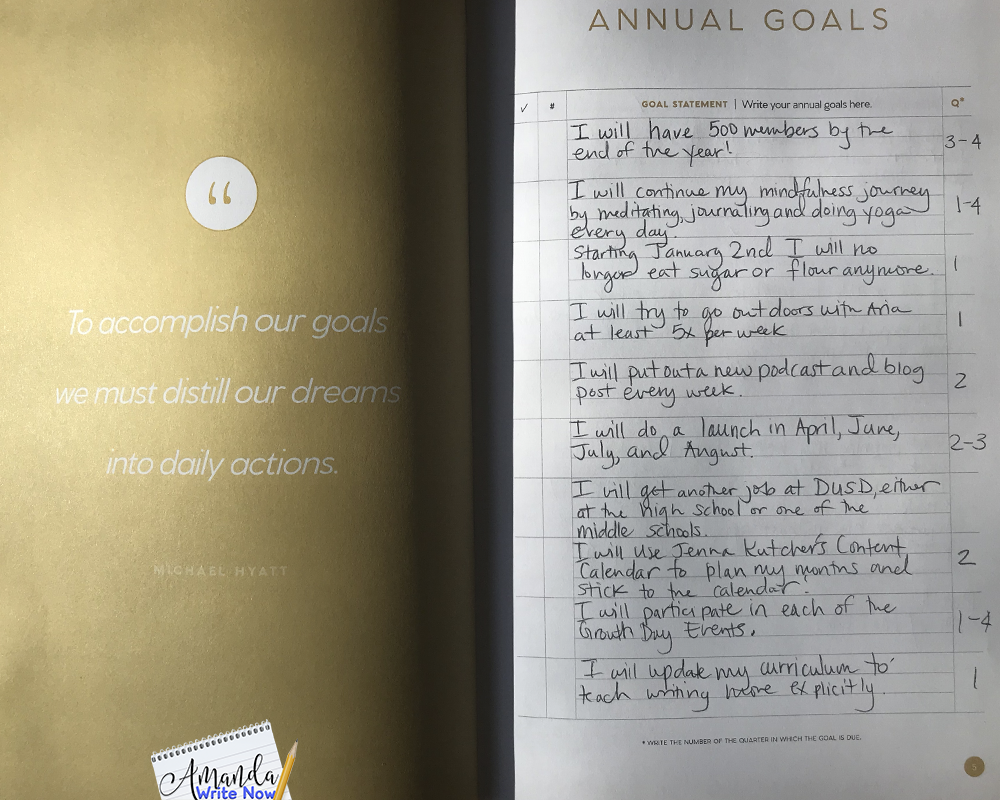 “
To accomplish our goals
we must distill our dreams
into daily actions.
MICHAEL HYATT
Amanda
Write Now
ANNUAL GOALS
✓ # GOAL STATEMENT | Write your annual goals here. Q*
I will have 500 members by the
end of the year!
3-4
I will continue my mindfulness journey
by meditating, journaling and doing yoga
every day.
1-4
Starting January 2nd I will no
longer eat sugar or flour anymore.
1
I will try to go outdoors with Aria
at least 5x per week
1
I will put out a new podcast and blog
post every week.
2
I will do a launch in April, June,
July, and August.
2-3
I will get another job at DUSD, either
at the high school or one of the
middle schools.
I will use Jenna Kutcher's Content
Calendar to plan my months and
stick to the calendar.
2
I will participate in each of the
Growth Day Events.
1-4
I will update my curriculum to
teach writing more explicitly.
1
* WRITE THE NUMBER OF THE QUARTER IN WHICH THE GOAL IS DUE.